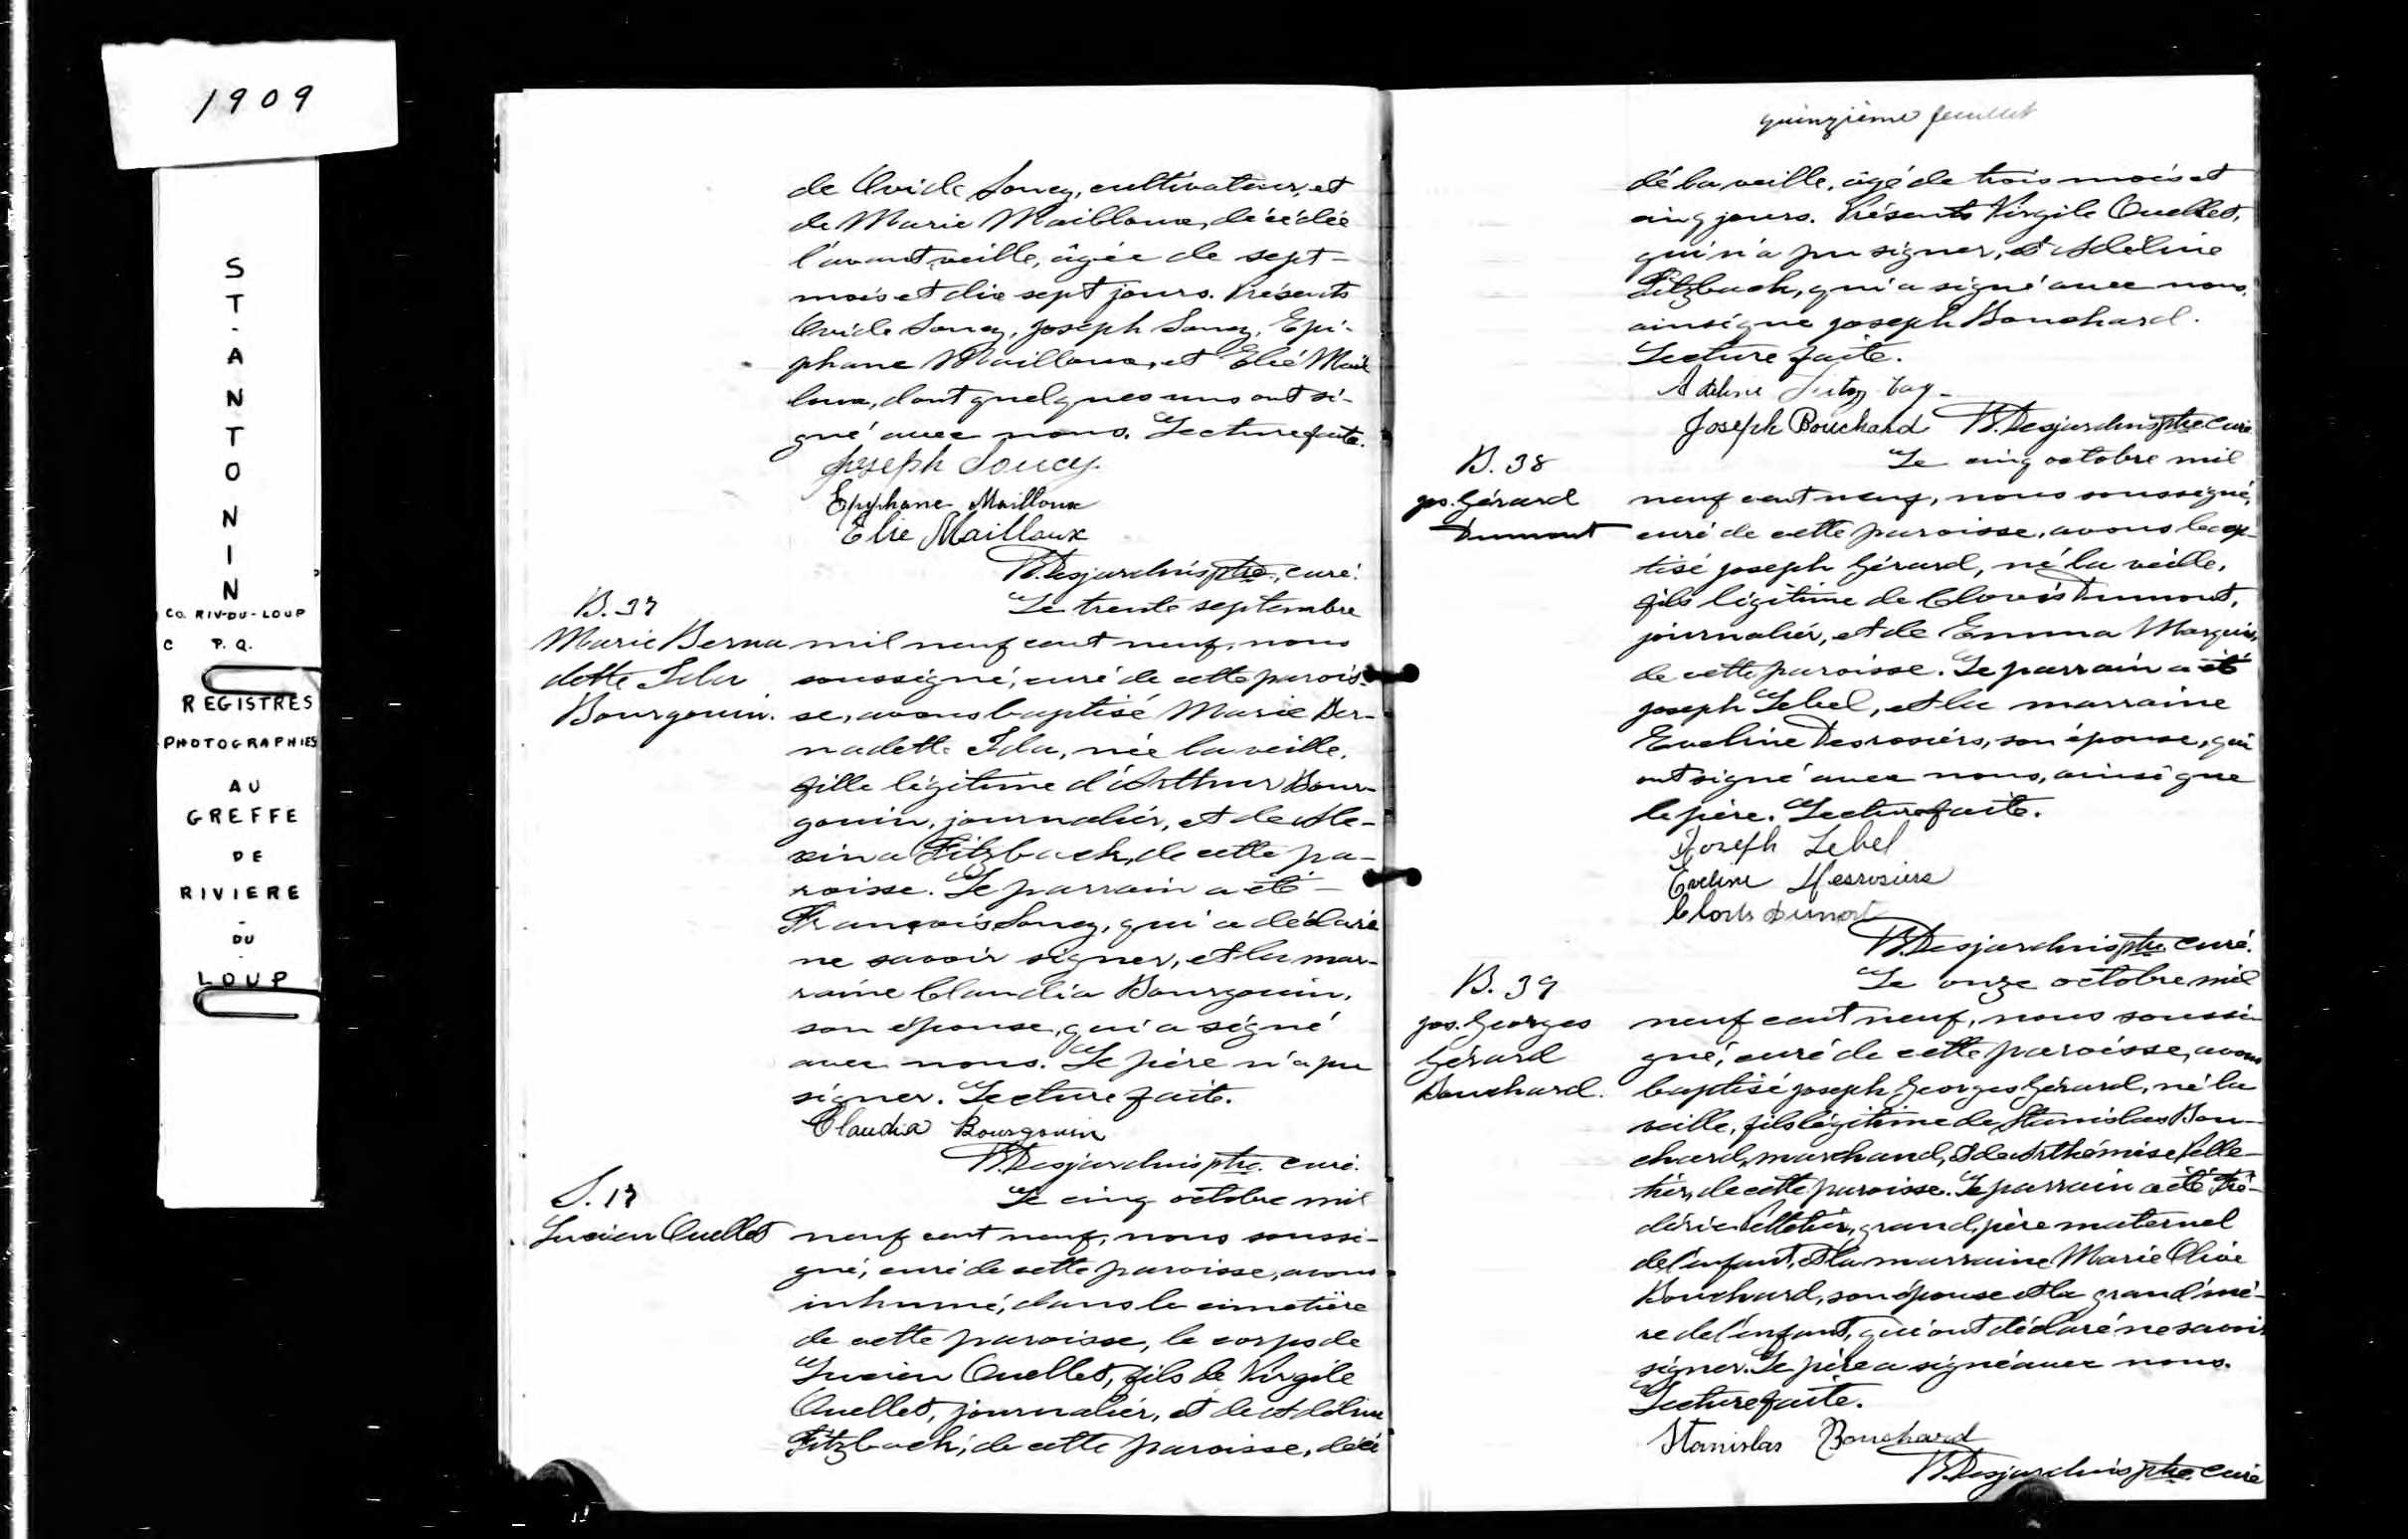 1909
S
T
-
A
N
T
O
N
I
N
CO. RIV-DU-LOUP
C P. Q.
REGISTRES
PHOTOGRAPHIES
AU
GREFFE
DE
RIVIERE
-
DU
-
LOUP
de Ovide Soucy, cultivateur, et
de Marie Mailloux, décédée
l'avant veille, âgée de sept
mois et dix sept jours. Présents
Ovide Soucy, Joseph Soucy, Epi-
phane Mailloux, et Elie Mail
loux, dont quelques uns ont si-
gné avec nous. Lecture faite.
Joseph Soucy
Epyphane Mailloux
Elie Mailloux
Desjardins ptre, curé.
B. 37
Marie Berna
dette Ida
Bourgouin.
Le trente septembre
mil neuf cent neuf, nous
soussigné, curé de cette parois-
se, avons baptisé Marie Ber-
nadette Ida, née la veille,
fille légitime d'Arthur Bour-
gouin, journalier, et de Ale-
xina Fitzback, de cette pa-
roisse. Le parrain a été
François Soucy, qui a déclaré
ne savoir signer, et la mar-
raine Claudia Bourgouin,
son épouse, qui a signé
avec nous. Le père n'a pu
signer. Lecture faite.
Claudia Bourgouin
Desjardins ptre. curé.
S. 17
Lucien Ouellet
Le cinq octobre mil
neuf cent neuf, nous soussi-
gné, curé de cette paroisse, avons
inhumé, dans le cimetière
de cette paroisse, le corps de
Lucien Ouellet, fils de Virgile
Ouellet, journalier, et de Adéline
Fitzback, de cette paroisse, décé
quinzième feuillet
dé la veille, âgé de trois mois et
cinq jours. Présents Virgile Ouellet,
qui n'a pu signer, et Adéline
Fitzback, qui a signé avec nous,
ainsi que Joseph Bouchard.
Lecture faite.
Adeline
Joseph Bouchard Desjardins ptre curé
B. 38
Jos. Gérard
Dumont
Le cinq octobre mil
neuf cent neuf, nous soussigné,
curé de cette paroisse, avons bap-
tisé Joseph Gérard, né la veille,
fils légitime de Clovis Dumont,
journalier, et de Emma Marquis,
de cette paroisse. Le parrain a été
Joseph Lebel, et la marraine
Eveline Desrosiers, son épouse, qui
ont signé avec nous, ainsi que
le père. Lecture faite.
Joseph Lebel
Eveline Desrosiers
Clovis Dumont
Desjardins ptre curé.
B. 39
Jos. Georges
Gérard
Bouchard.
Le onze octobre mil
neuf cent neuf, nous soussi
gné, curé de cette paroisse, avons
baptisé Joseph Georges Gérard, né la
veille, fils légitime de Stanislas Bou-
chard, marchand, et de Arthémise Pelle-
tier, de cette paroisse. Le parrain a été Fré-
déric Pelletier, grand, père maternel
de l'enfant, et la marraine Marie Olive
Bouchard, son épouse et la grand'mè-
re de l'enfant, qui ont déclaré ne savoir
signer. Le père a signé avec nous.
Lecture faite.
Stanislas Bouchard
Desjardins ptre. curé